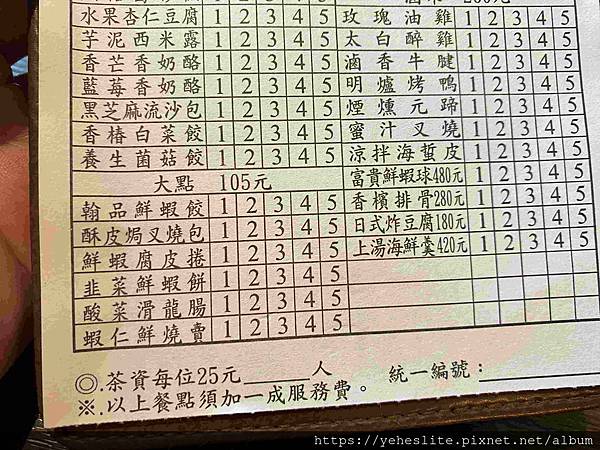 水果杏仁豆腐 1 2 3 4 5 玫瑰油雞 1 2 3 4 5
芋泥西米露 1 2 3 4 5 太白醉雞 1 2 3 4 5
香芒香奶酪 1 2 3 4 5 滷香牛腱 1 2 3 4 5
藍莓香奶酪 1 2 3 4 5 明爐烤鴨 1 2 3 4 5
黑芝麻流沙包 1 2 3 4 5 煙燻元蹄 1 2 3 4 5
香椿白菜餃 1 2 3 4 5 蜜汁叉燒 1 2 3 4 5
養生菌菇餃 1 2 3 4 5 涼拌海蜇皮 1 2 3 4 5
大點 105元 富貴鮮蝦球480元 1 2 3 4 5
翰品鮮蝦餃 1 2 3 4 5 香檳排骨280元 1 2 3 4 5
酥皮焗叉燒包 1 2 3 4 5 日式炸豆腐180元 1 2 3 4 5
鮮蝦腐皮捲 1 2 3 4 5 上湯海鮮羹420元 1 2 3 4 5
韭菜鮮蝦餅 1 2 3 4 5
酸菜滑龍腸 1 2 3 4 5
蝦仁鮮燒賣 1 2 3 4 5
◎.茶資每位25元____人 統一編號：
※.以上餐點須加一成服務費。
https://yeheslite.pixnet.net/album